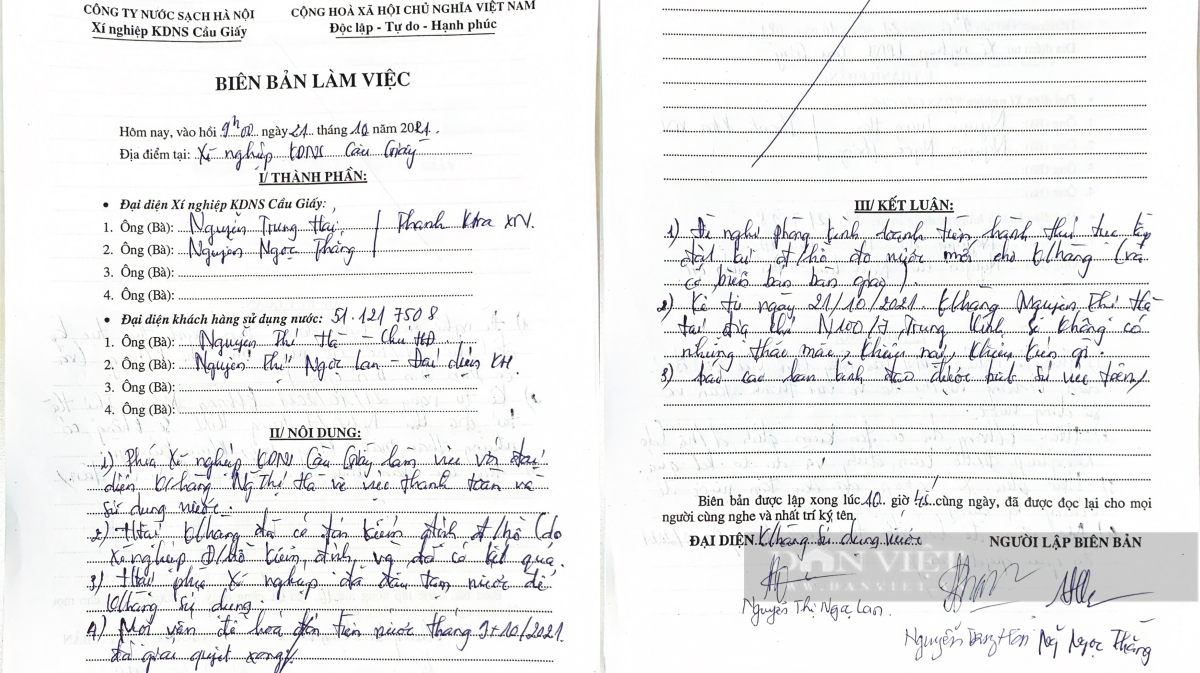 CÔNG TY NƯỚC SẠCH HÀ NỘI
Xí nghiệp KDNS Cầu Giấy
CỘNG HOÀ XÃ HỘI CHỦ NGHĨA VIỆT NAM
Độc lập - Tự do - Hạnh phúc
BIÊN BẢN LÀM VIỆC
Hôm nay, vào hồi 9h00 ngày 21 tháng 10 năm 2021.
Địa điểm tại: Xí nghiệp KDNS Cầu Giấy
I/ THÀNH PHẦN:
• Đại diện Xí nghiệp KDNS Cầu Giấy:
1. Ông (Bà): Nguyễn Trung Hải
2. Ông (Bà): Nguyễn Ngọc Thắng
Thanh tra XN.
3. Ông (Bà):
4. Ông (Bà):
• Đại diện khách hàng sử dụng nước: 51.121 7508
1. Ông (Bà): Nguyễn Thị Hà - Chủ HĐ
2. Ông (Bà): Nguyễn Thị Ngọc Lan - Đại diện KH.
3. Ông (Bà):
4. Ông (Bà):
II/ NỘI DUNG:
1) Phía Xí nghiệp KDNS Cầu Giấy làm việc với đại
diện k/hàng Ng Thị Hà về việc thanh toán và
sử dụng nước.
2) Hai k/hàng đã có đơn kiểm định đ/hồ (do
Xí nghiệp đ/hồ kiểm định và đã có kết quả.
3) Hai phía Xí nghiệp đã đấu tạm nước để
k/hàng sử dụng.
4) Mọi vấn đề hoá đơn tiền nước tháng 9+10/2021
đã giải quyết xong/.
III/ KẾT LUẬN:
1) Đề nghị phòng kinh doanh tiến hành thủ tục lắp
đặt lại đ/hồ đo nước mới cho k/hàng (và
có biên bản bàn giao)
2) Kể từ ngày 21/10/2021 k/hàng Nguyễn Thị Hà
tại địa chỉ N100/7 Trung Kính sẽ không có
những thắc mắc, khiếu nại, khiếu kiện gì.
3) báo cáo ban lãnh đạo được biết sự việc trên/
Biên bản được lập xong lúc 10 giờ 45 cùng ngày, đã được đọc lại cho mọi
người cùng nghe và nhất trí ký tên.
ĐẠI DIỆN K/hàng sử dụng nước
NGƯỜI LẬP BIÊN BẢN
DÂN VIỆT
Nguyễn Thị Ngọc Lan
Nguyễn Trung Hải
Ng Ngọc Thắng